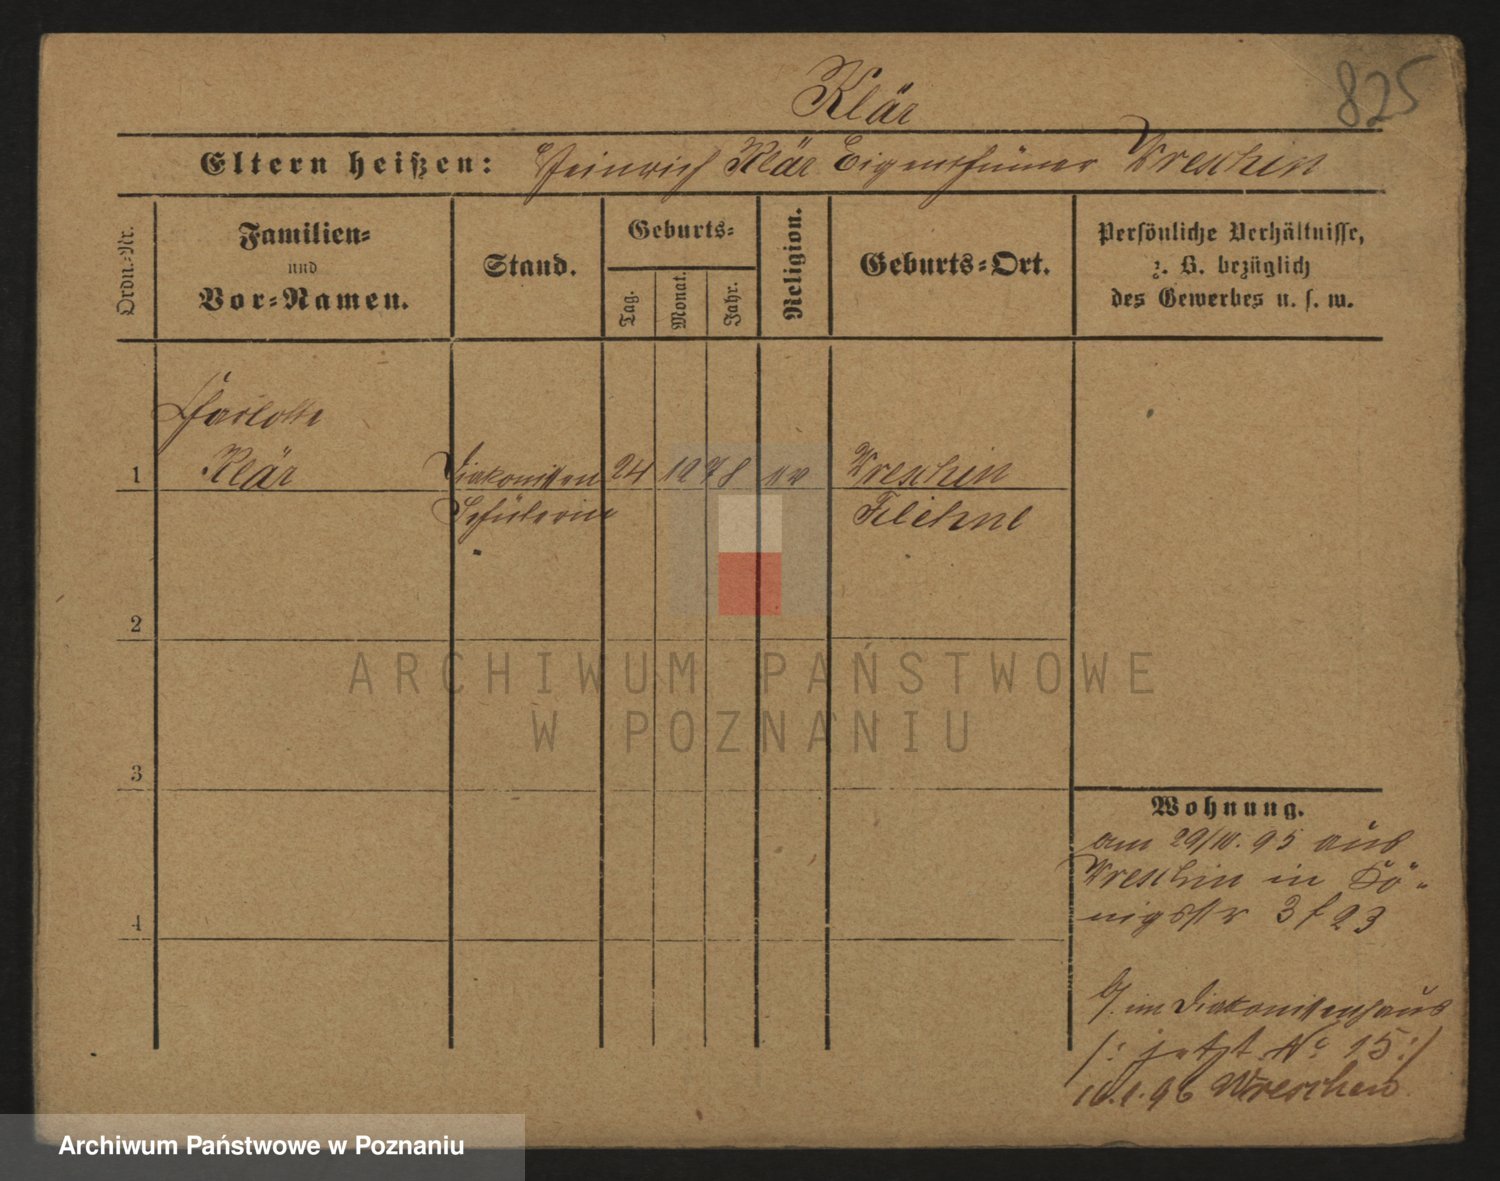 Klär
825
Eltern heißen: Heinrich Klär Eigenthümer Wreschin
Ordn.-Nr.
Familien-
und
Vor-Namen.
Stand.
Geburts-
Tag.
Monat.
Jahr.
Religion.
Geburts-Ort.
Persönliche Verhältnisse,
z. B. bezüglich
des Gewerbes u. s. w.
Charlotte
1 Klär Diakonissen 24 12 78 ev Wreschin
Schülerin Filehne
2
3
4
ARCHIWUM PAŃSTWOWE
W POZNANIU
Wohnung.
am 29/10. 95 aus
Wreschin in Kö-
nigsstr 3 f 23
im Diakonissenhaus
/: jetzt No 15:/
96 Wreschen
Archiwum Państwowe w Poznaniu